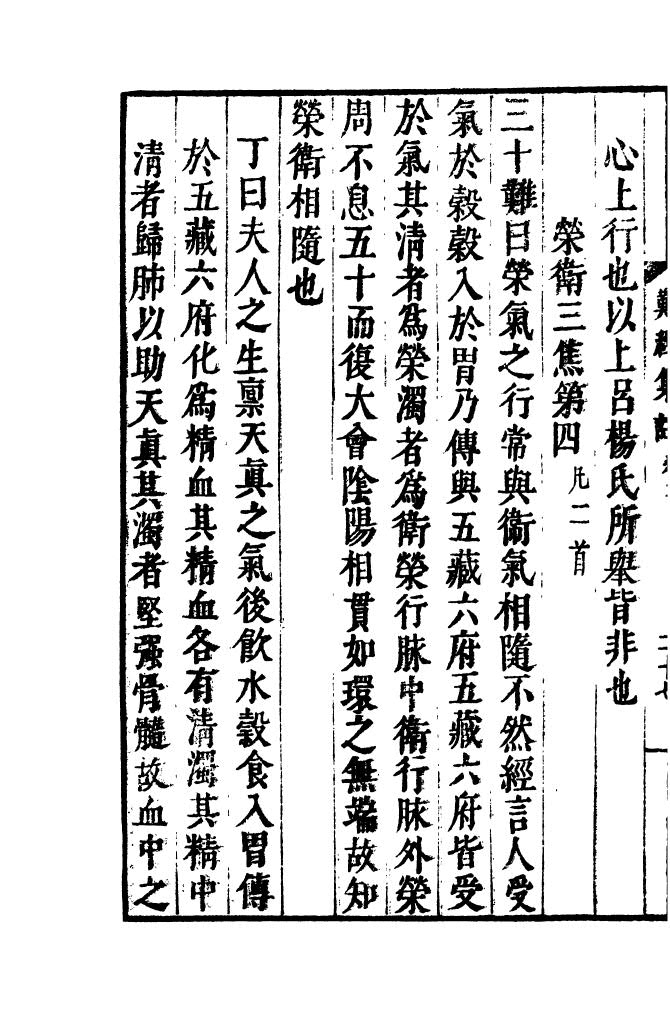 難經集註
二十七
心上行也以上呂楊氏所舉皆非也
榮衛三焦第四凡二首
三十難曰榮氣之行常與衞氣相隨不然經言人受
氣於穀穀入於胃乃傳與五藏六府五藏六府皆受
於氣其清者爲榮濁者爲衛榮行脉中衛行脉外榮
周不息五十而復大會陰陽相貫如環之無端故知
榮衛相隨也
丁曰夫人之生禀天眞之氣後飮水穀食入胃傳
於五藏六府化爲精血其精血各有清濁其精中
清者歸肺以助天眞其濁者堅强骨髓故血中之